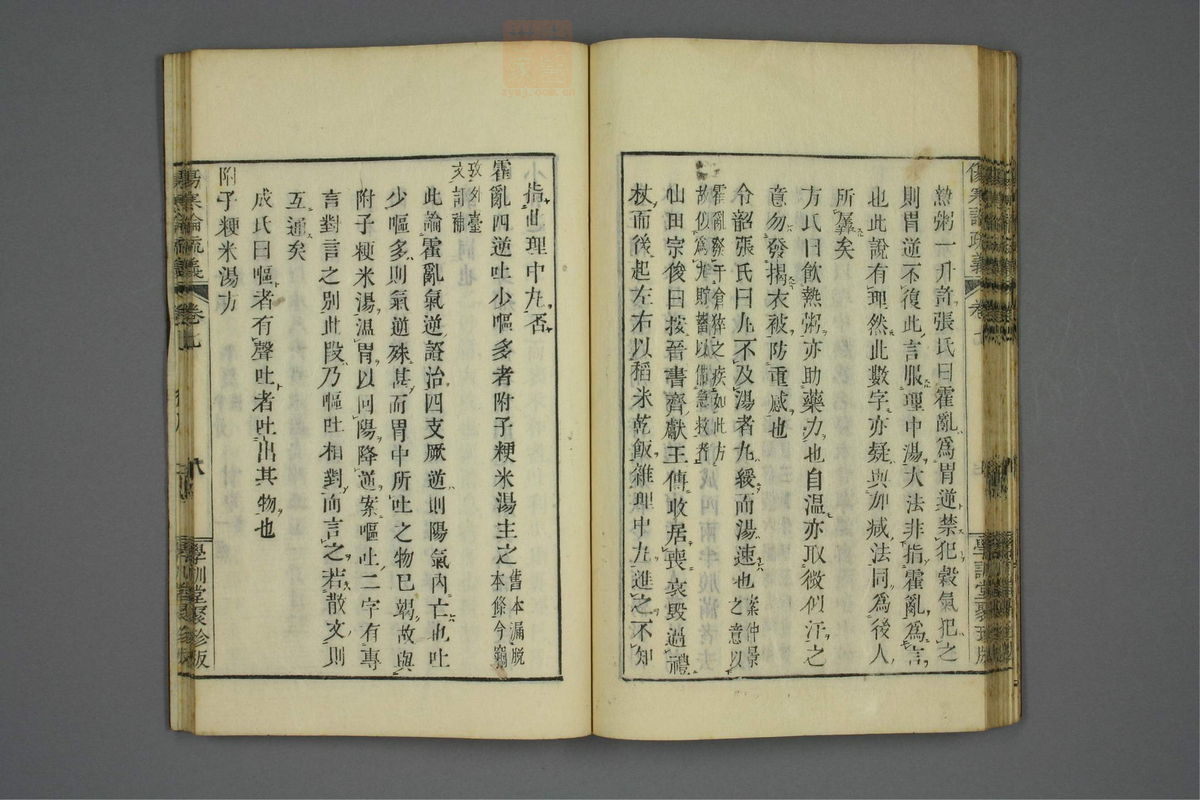 熱粥一升許張氏曰霍亂爲胃逆禁犯穀氣犯之
則胃逆不復此言服理中湯大法非指霍亂爲言
也此說有理然此數字亦疑與加減法同爲後人
所羼矣
方氏曰飲熱粥亦助藥力也自溫亦取微似汗之
意勿發揭衣被防重感也
令韶張氏曰丸不及湯者丸緩而湯速也案仲景之意以
霍亂發于倉猝之疾如此方
故似爲丸貯蓄以備急救者
山田宗俊曰按晉書齊獻王傳攸居喪哀毀過禮
杖而後起左右以稻米乾飯雜理中丸進之不知
傷寒論疏義 卷七 學訓堂聚珍版
指此理中丸否
霍亂四逆吐少嘔多者附子粳米湯主之舊本漏脫本條今竊
攷外臺
文訂補
此論霍亂氣逆證治四支厥逆則陽氣內亡也吐
少嘔多則氣逆殊甚而胃中所吐之物已竭故與
附子粳米湯溫胃以回陽降逆案嘔吐二字有專
言對言之別此段乃嘔吐相對而言之若散文則
互通矣
成氏曰嘔者有聲吐者吐出其物也
附子粳米湯方
傷寒論疏義 卷七 學訓堂聚珍版